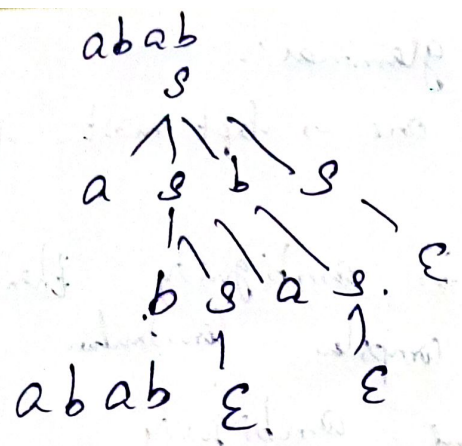 abab
S
a S b S
ε
b S a S
abab ε ε